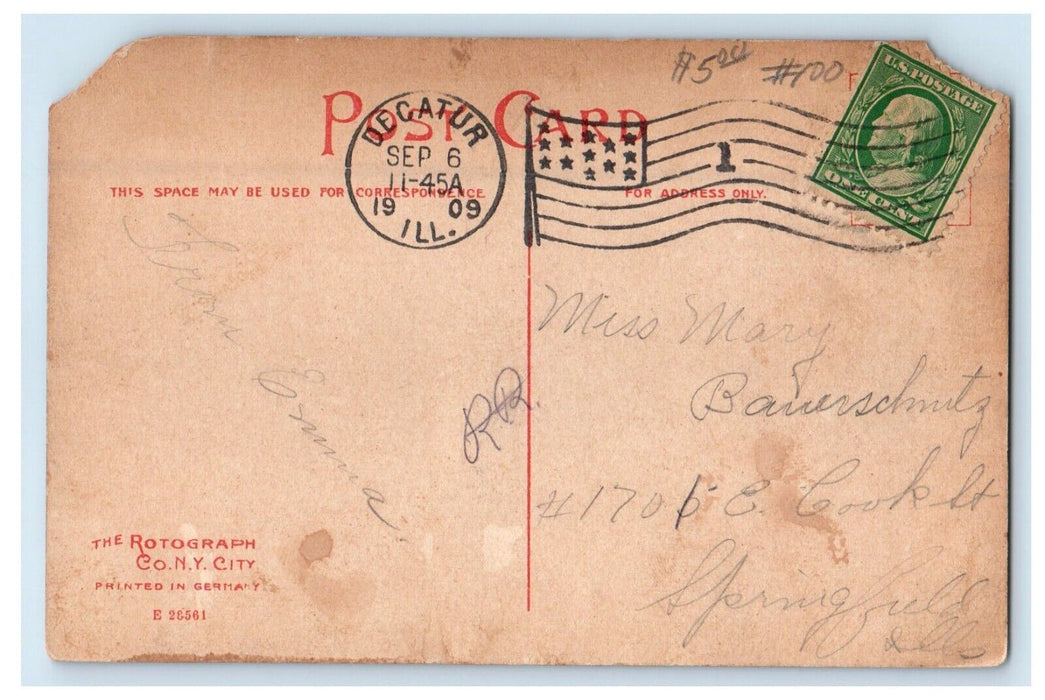 $5.00 #100
POST CARD
THIS SPACE MAY BE USED FOR CORRESPONDENCE
FOR ADDRESS ONLY.
DECATUR
SEP 6
11-45A
19 09
ILL.
1
U.S. POSTAGE
ONE CENT
From
Emma.
RR.
Miss Mary
Bauerschmitz
#1706 E. Cook St
Springfield
Ills
THE ROTOGRAPH
CO. N.Y. CITY
PRINTED IN GERMANY
E 28561